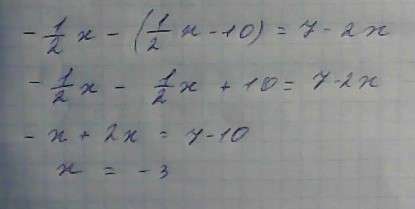 -1/2 x - (1/2 x - 10) = 7 - 2x
-1/2 x - 1/2 x + 10 = 7 - 2x
- x + 2x = 7 - 10
x = -3